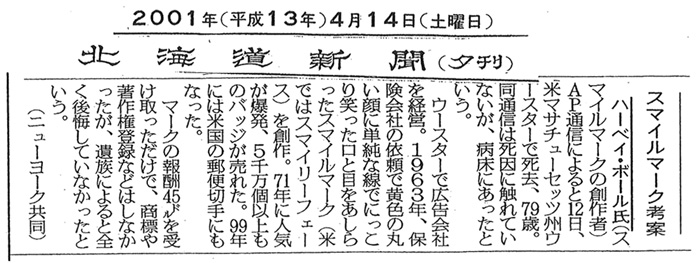 2001年(平成13年)4月14日(土曜日)
北海道新聞(夕刊)
スマイルマーク考案
ハーベイ・ボール氏(ス
マイルマークの創作者)
AP通信によると12日、
米マサチューセッツ州ウ
ースターで死去、79歳。
同通信は死因に触れてい
ないが、病床にあったと
いう。
ウースターで広告会社
を経営。1963年、保
険会社の依頼で黄色の丸
い顔に単純な線でにっこ
り笑った口と目をあしら
ったスマイルマーク(米
ではスマイリーフェー
ス)を創作。71年に人気
が爆発、5千万個以上も
のバッジが売れた。99年
には米国の郵便切手にも
なった。
マークの報酬45㌦を受
け取っただけで、商標や
著作権登録などはしなか
ったが、遺族によると全
く後悔していなかったと
いう。
(ニューヨーク共同)